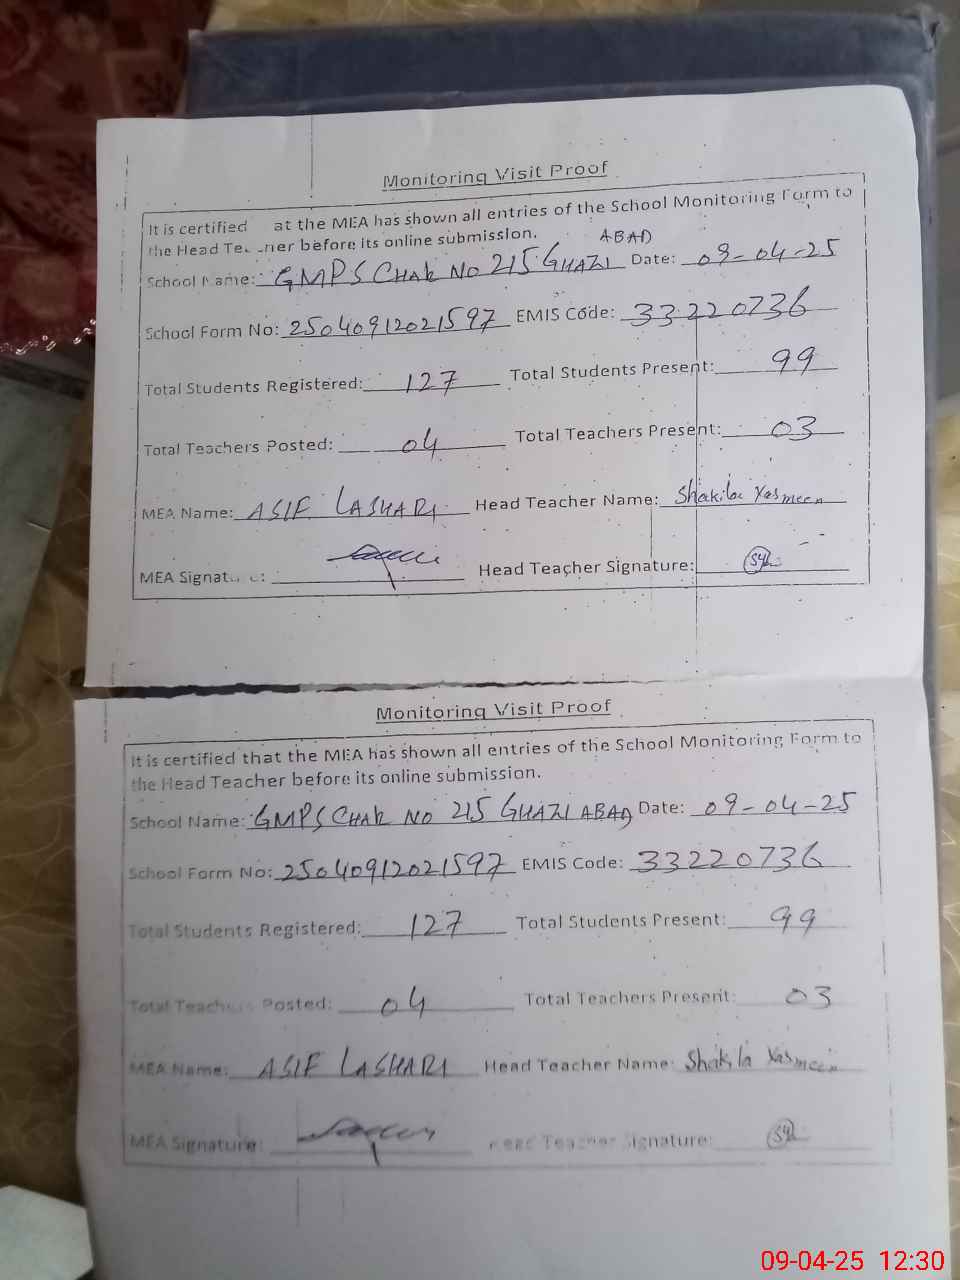 Monitoring Visit Proof
It is certified at the MEA has shown all entries of the School Monitoring Form to
the Head Teacher before its online submission.
ABAD
School Name: GMPS CHAK NO 215 GHAZI Date: 09-04-25
School Form No: 25040912021597 EMIS Code: 33220736
Total Students Registered: 127 Total Students Present: 99
Total Teachers Posted: 04 Total Teachers Present: 03
MEA Name: ASIF LASHARI Head Teacher Name: Shakila Yasmeen
MEA Signature: Head Teacher Signature:
Monitoring Visit Proof
It is certified that the MEA has shown all entries of the School Monitoring Form to
the Head Teacher before its online submission.
School Name: GMPS CHAK NO 215 GHAZI ABAD Date: 09-04-25
School Form No: 25040912021597 EMIS Code: 33220736
Total Students Registered: 127 Total Students Present: 99
Total Teachers Posted: 04 Total Teachers Present: 03
MEA Name: ASIF LASHARI Head Teacher Name: Shakila Yasmeen
MEA Signature: Head Teacher Signature:
09-04-25 12:30